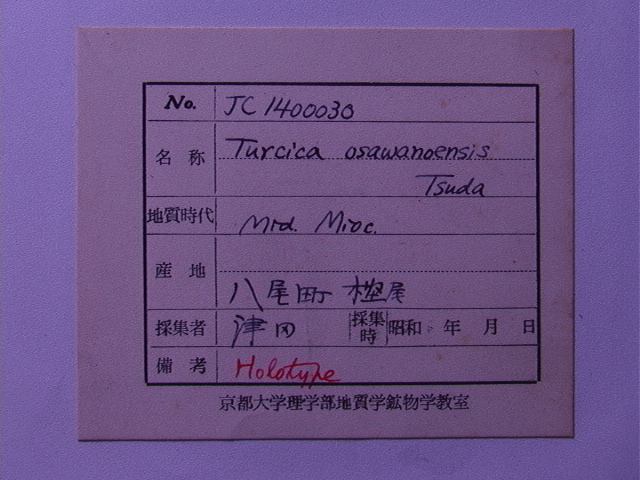 No. JC1400030
名称 Turcica osawanoensis
Tsuda
地質時代 Mid. Mioc.
産地
八尾町 極尾
採集者 津田 採集時 昭和 年 月 日
備考 Holotype
京都大学理学部地質学鉱物学教室